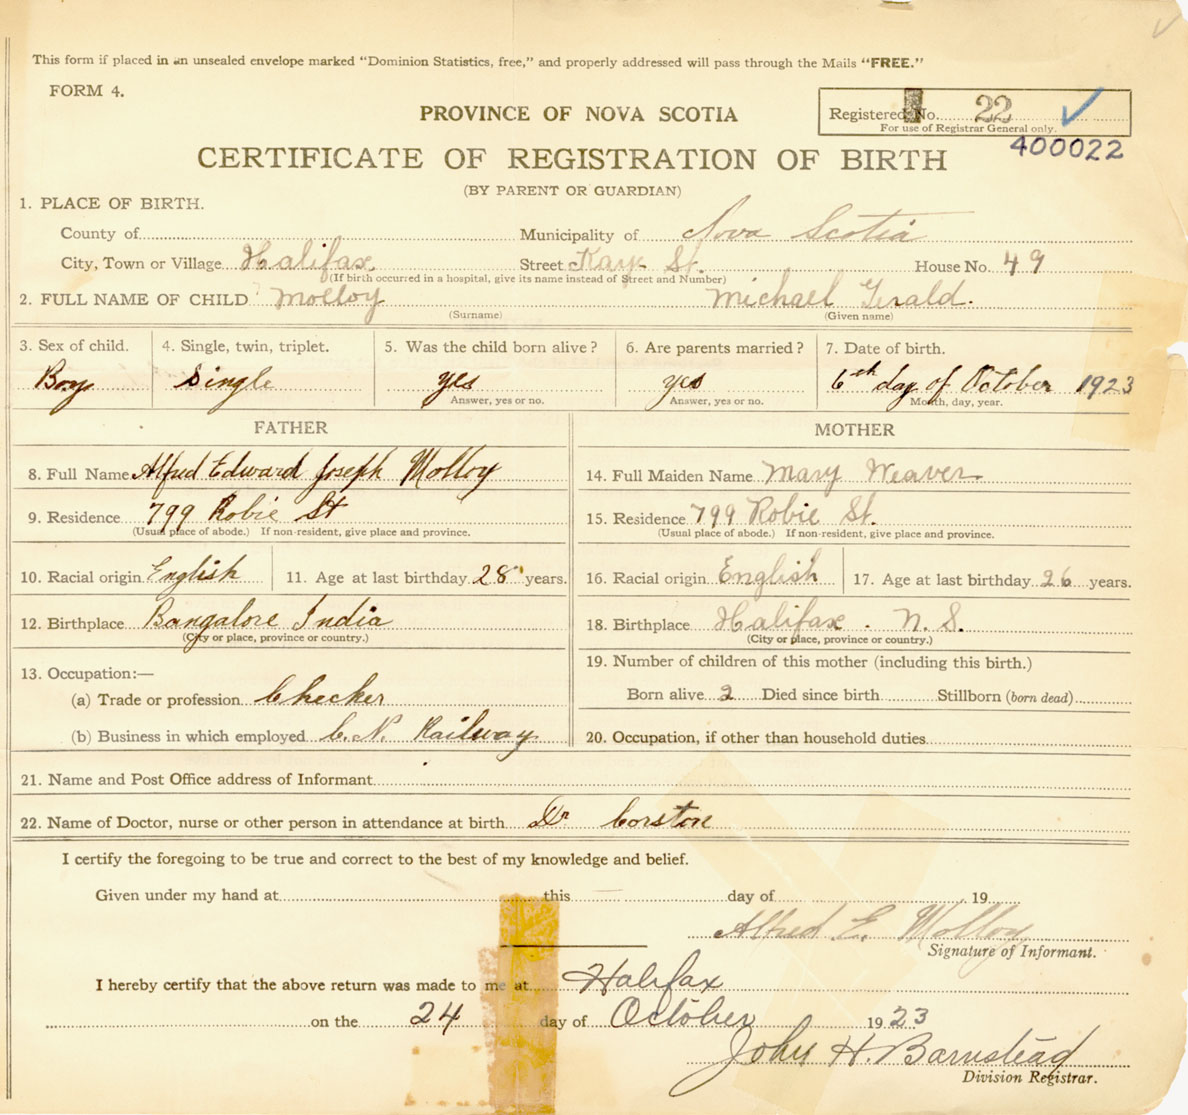 This form if placed in an unsealed envelope marked "Dominion Statistics, free," and properly addressed will pass through the Mails "FREE."
FORM 4.
PROVINCE OF NOVA SCOTIA
Registered No. 22
For use of Registrar General only.
400022
CERTIFICATE OF REGISTRATION OF BIRTH
(BY PARENT OR GUARDIAN)
1. PLACE OF BIRTH.
County of Municipality of Nova Scotia
City, Town or Village Halifax Street Kaye St. House No. 49
(If birth occurred in a hospital, give its name instead of Street and Number)
2. FULL NAME OF CHILD Molloy Michael Gerald.
(Surname) (Given name)
3. Sex of child. 4. Single, twin, triplet. 5. Was the child born alive? 6. Are parents married? 7. Date of birth.
Boy Single yes yes 6th day of October 1923
Answer, yes or no. Answer, yes or no. Month, day, year.
FATHER MOTHER
8. Full Name Alfred Edward Joseph Molloy 14. Full Maiden Name Mary Weaver
9. Residence 799 Robie St 15. Residence 799 Robie St.
(Usual place of abode.) If non-resident, give place and province. (Usual place of abode.) If non-resident, give place and province.
10. Racial origin English 11. Age at last birthday 28 years. 16. Racial origin English 17. Age at last birthday 26 years.
12. Birthplace Bangalore India 18. Birthplace Halifax . N. S.
(City or place, province or country.) (City or place, province or country.)
13. Occupation:— 19. Number of children of this mother (including this birth.)
(a) Trade or profession Checker Born alive 2 Died since birth Stillborn (born dead)
(b) Business in which employed C. N. Railway 20. Occupation, if other than household duties
21. Name and Post Office address of Informant
22. Name of Doctor, nurse or other person in attendance at birth Dr Corston
I certify the foregoing to be true and correct to the best of my knowledge and belief.
Given under my hand at this day of 19
Alfred E. Molloy
Signature of Informant.
I hereby certify that the above return was made to me at Halifax
on the 24 day of October 1923
John H. Barnstead
Division Registrar.